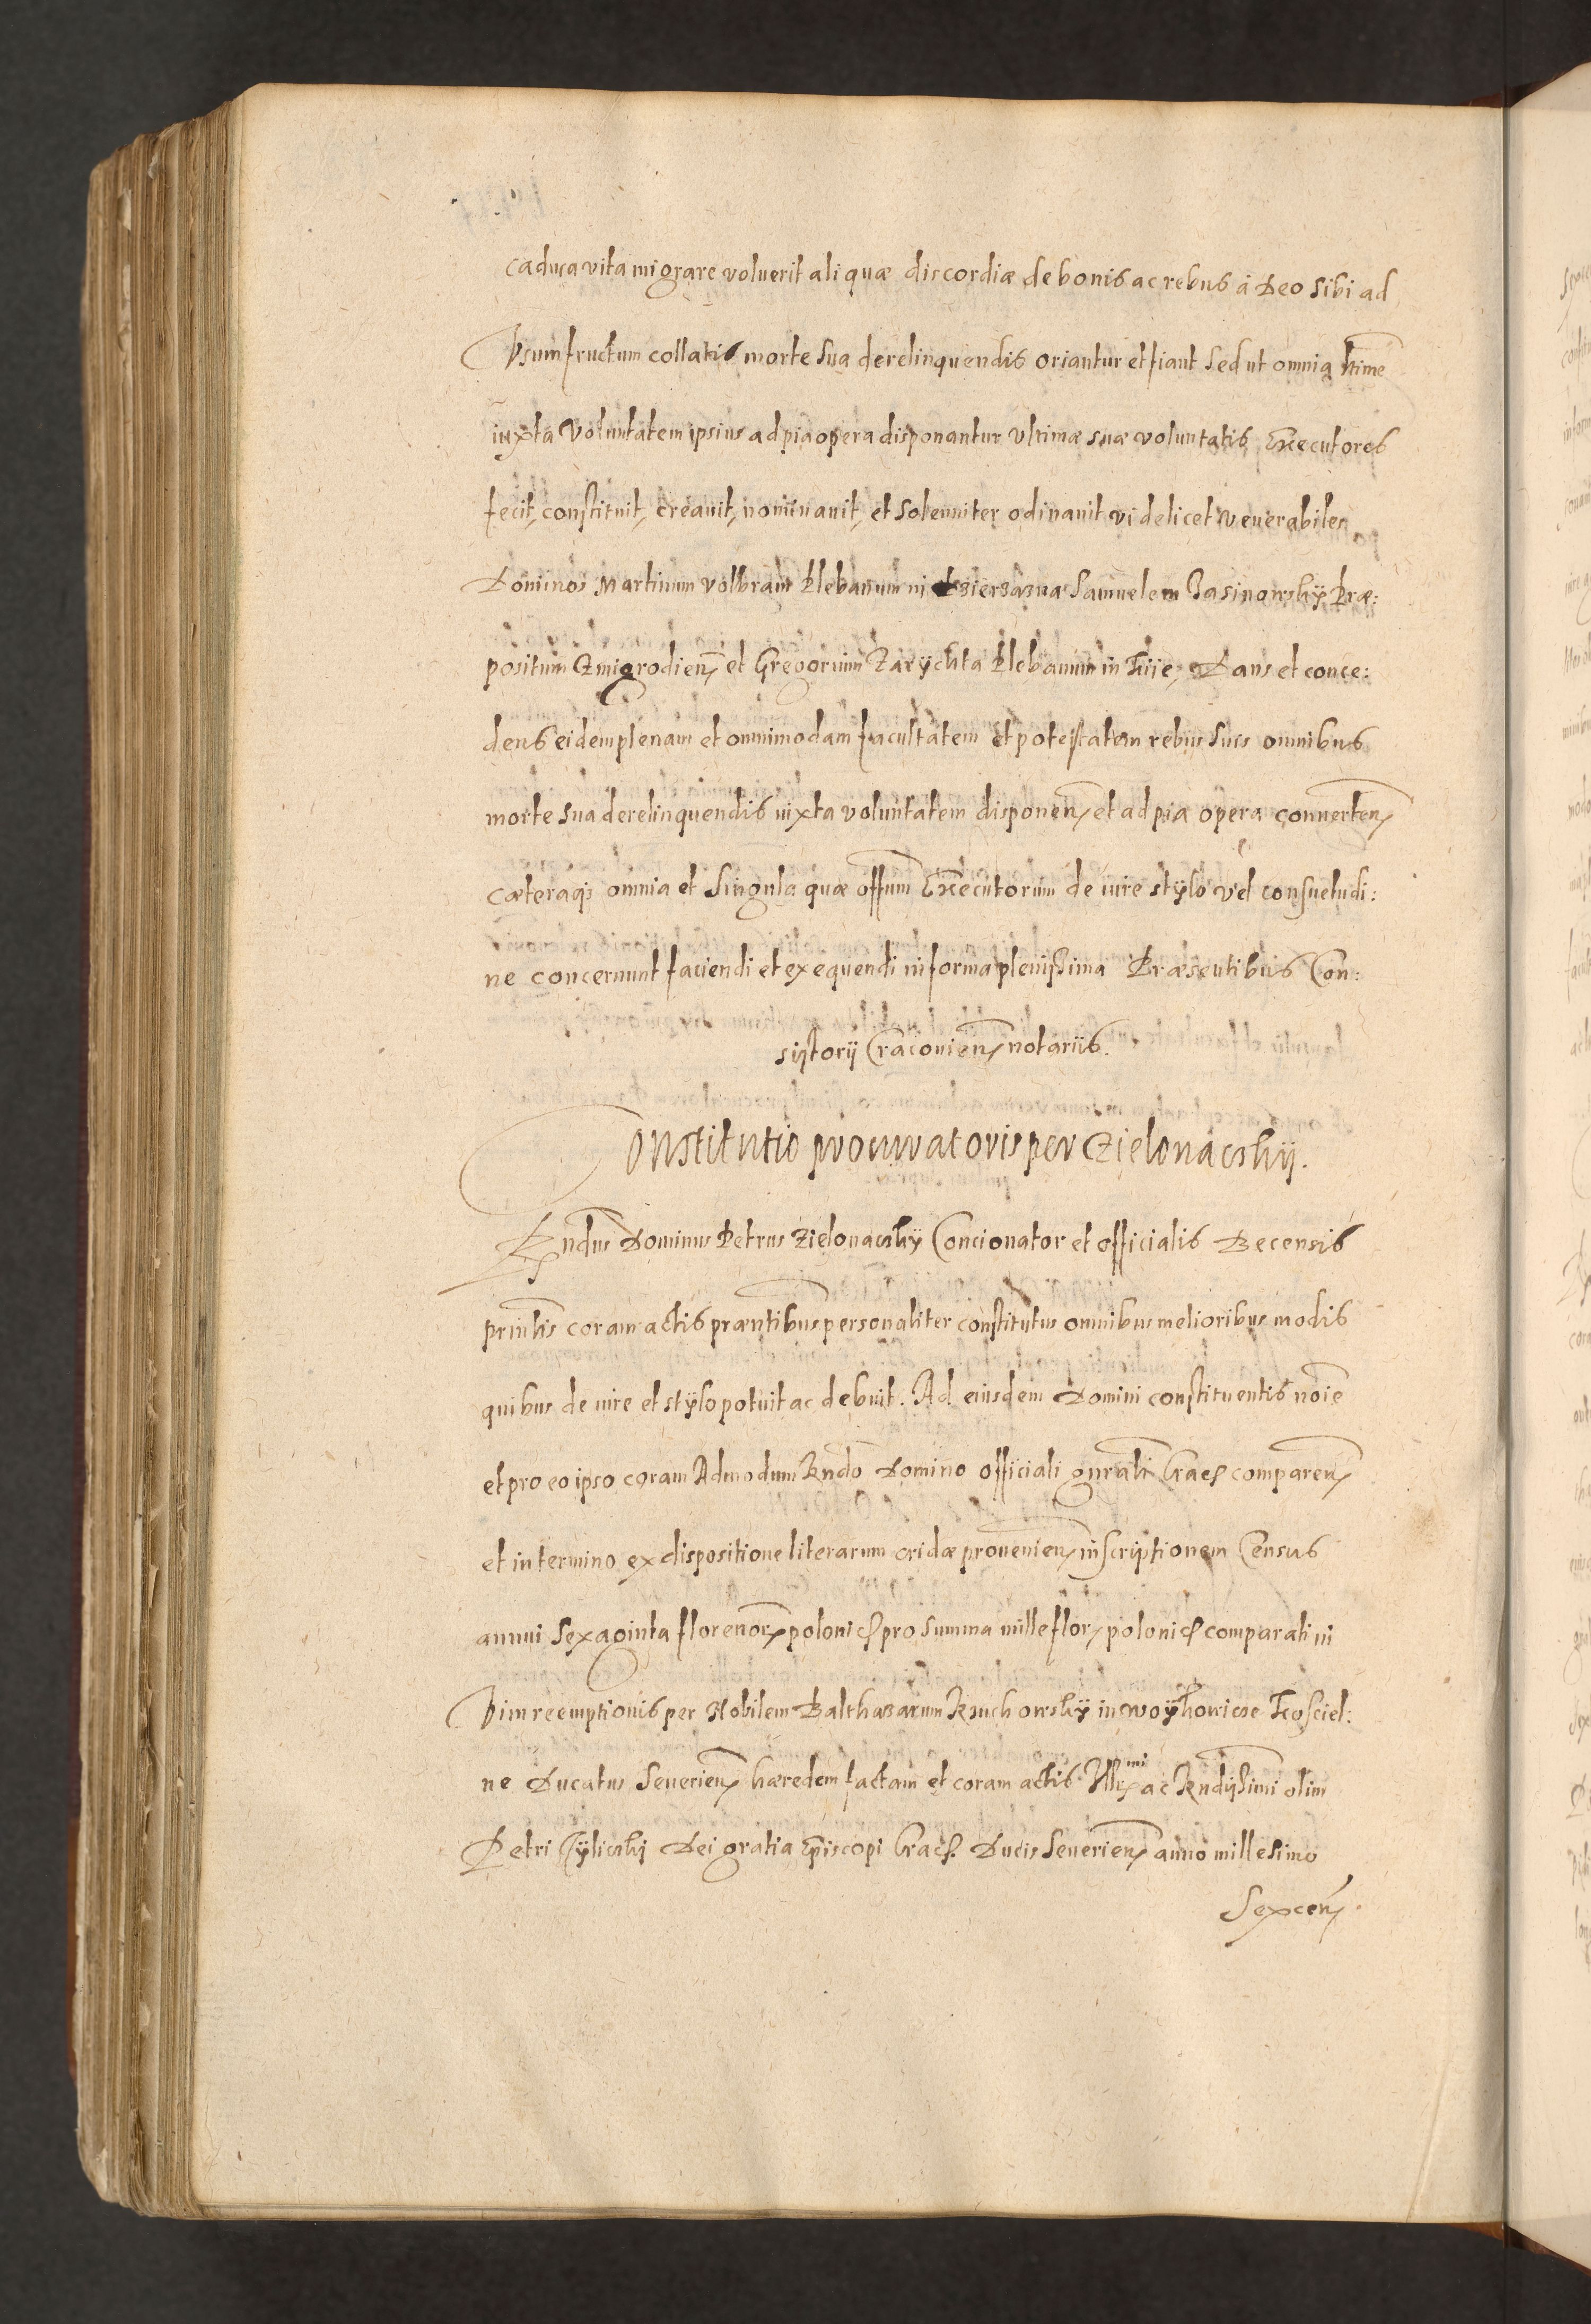 caduca vita migrare voluerit aliquæ discordiæ de bonis ac rebus à Deo sibi ad
Vsumfructum collatis morte sua derelinquendis oriantur et fiant sed ut omnia
iuxta voluntatem ipsius ad pia opera disponantur vltimæ suæ voluntatis Executores
fecit, constituit, creauit, nominauit, et solenniter odinauit videlicet venerabiles
Dominos Martinum Volbram Plebanum in Samuelem Jasinowsky Præ:
positum Zmigrodien et Gregorium Zarychta Plebanum in Dans et conce:
dens eidem plenam et omnimodam facultatem et potestatem rebus suis omnibus
morte sua derelinquendis iuxta voluntatem disponen et ad pia opera conuerten
cæteraq; omnia et singula quæ offum Executorum de iure stylo vel consuetudi:
ne concernunt faciendi et exequendi in forma plenissima Præsentibus Con:
sistorij Cracouien notariis.
Constitutio procuratoris per Zielonacsky.
Rndus Dominus Petrus Zielonacsky Concionator et officialis Becensis
prinlis coram actis præntibus personaliter constitutus omnibus melioribus modis
quibus de iure et stylo potuit ac debuit. Ad eiusdem Domini constituentis noie
et pro eo ipso coram Admodum Rndo Domino officiali gnrali Crac comparen
et in termino ex dispositione literarum cridæ prouenien inscriptionem Census
annui sexaginta florenor polonic pro summa mille flor polonic comparati in
Vim reemptionis per Nobilem Balthazarum in Kosciel:
ne Ducatus Seuerien hæredem factam et coram actis Illrmi ac Rndissimi olim
Petri Tylicski Dei gratia Episcopi Crac. Ducis Seuerien anno millesimo
Sexcen